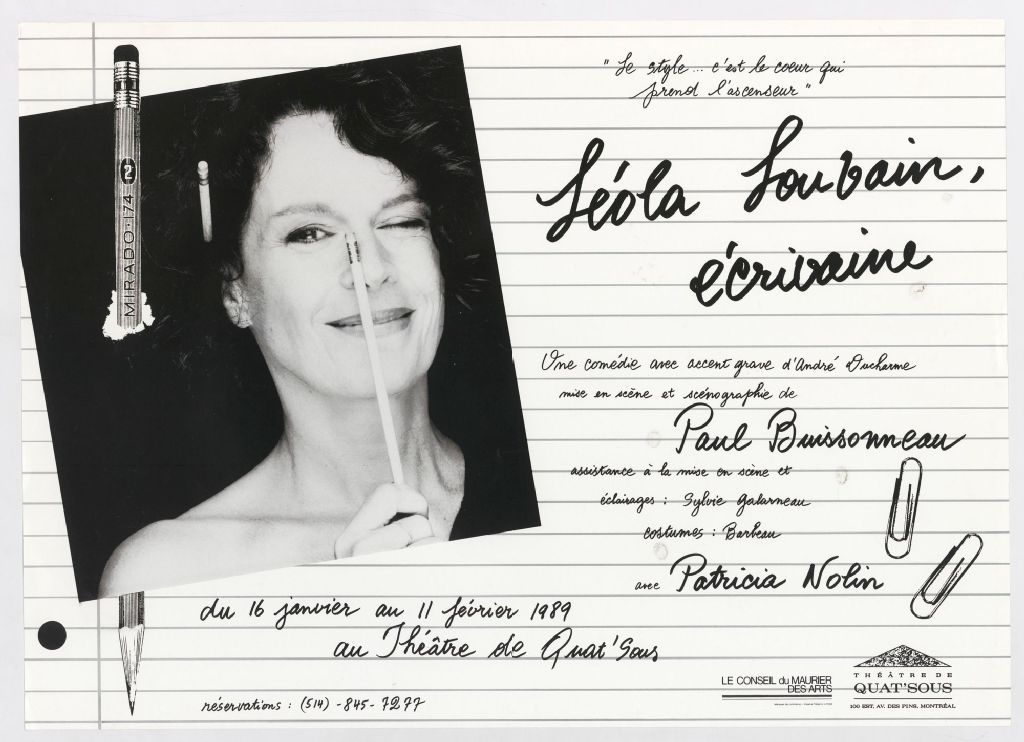 " Le style... c'est le coeur qui
prend l'ascenseur "
Léola Louvain,
écrivaine
Une comédie avec accent grave d'André Ducharme
mise en scène et scénographie de
Paul Buissonneau
assistance à la mise en scène et
éclairages : Sylvie Galarneau
costumes : Barbeau
avec Patricia Nolin
du 16 janvier au 11 février 1989
au Théâtre de Quat'Sous
réservations : (514) - 845 - 7277
MIRADO · 174 2
LE CONSEIL DU MAURIER
DES ARTS
THÉÂTRE DE
QUAT'SOUS
100 EST, AV. DES PINS, MONTRÉAL